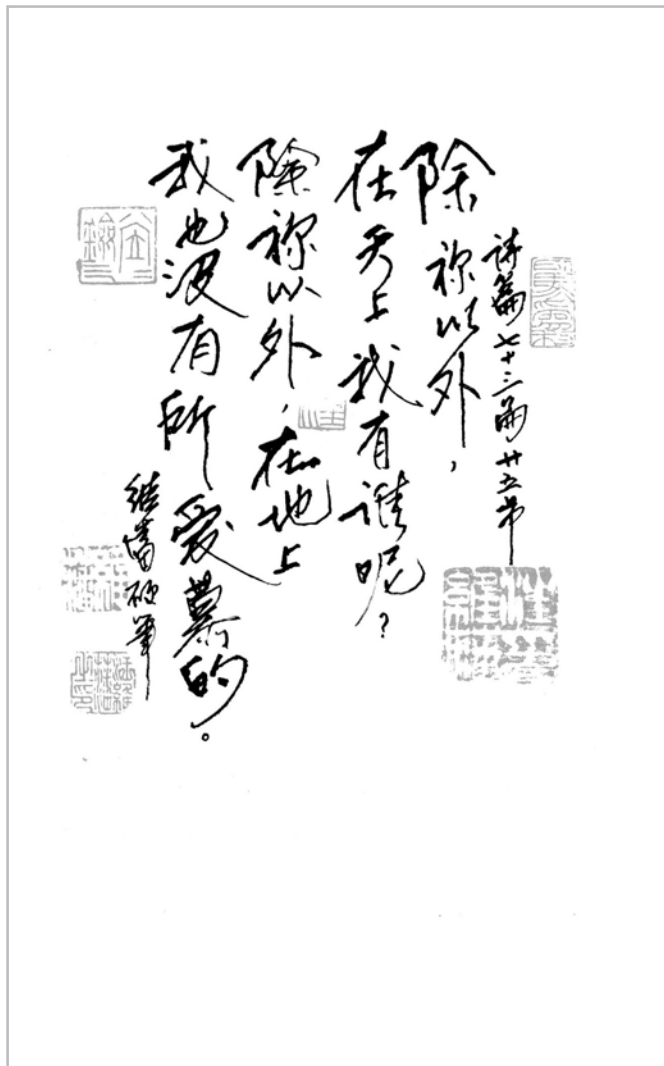 诗篇七十三篇廿五节
除祢以外，
在天上我有谁呢？
除祢以外，在地上
我也没有所爱慕的。
硬筆